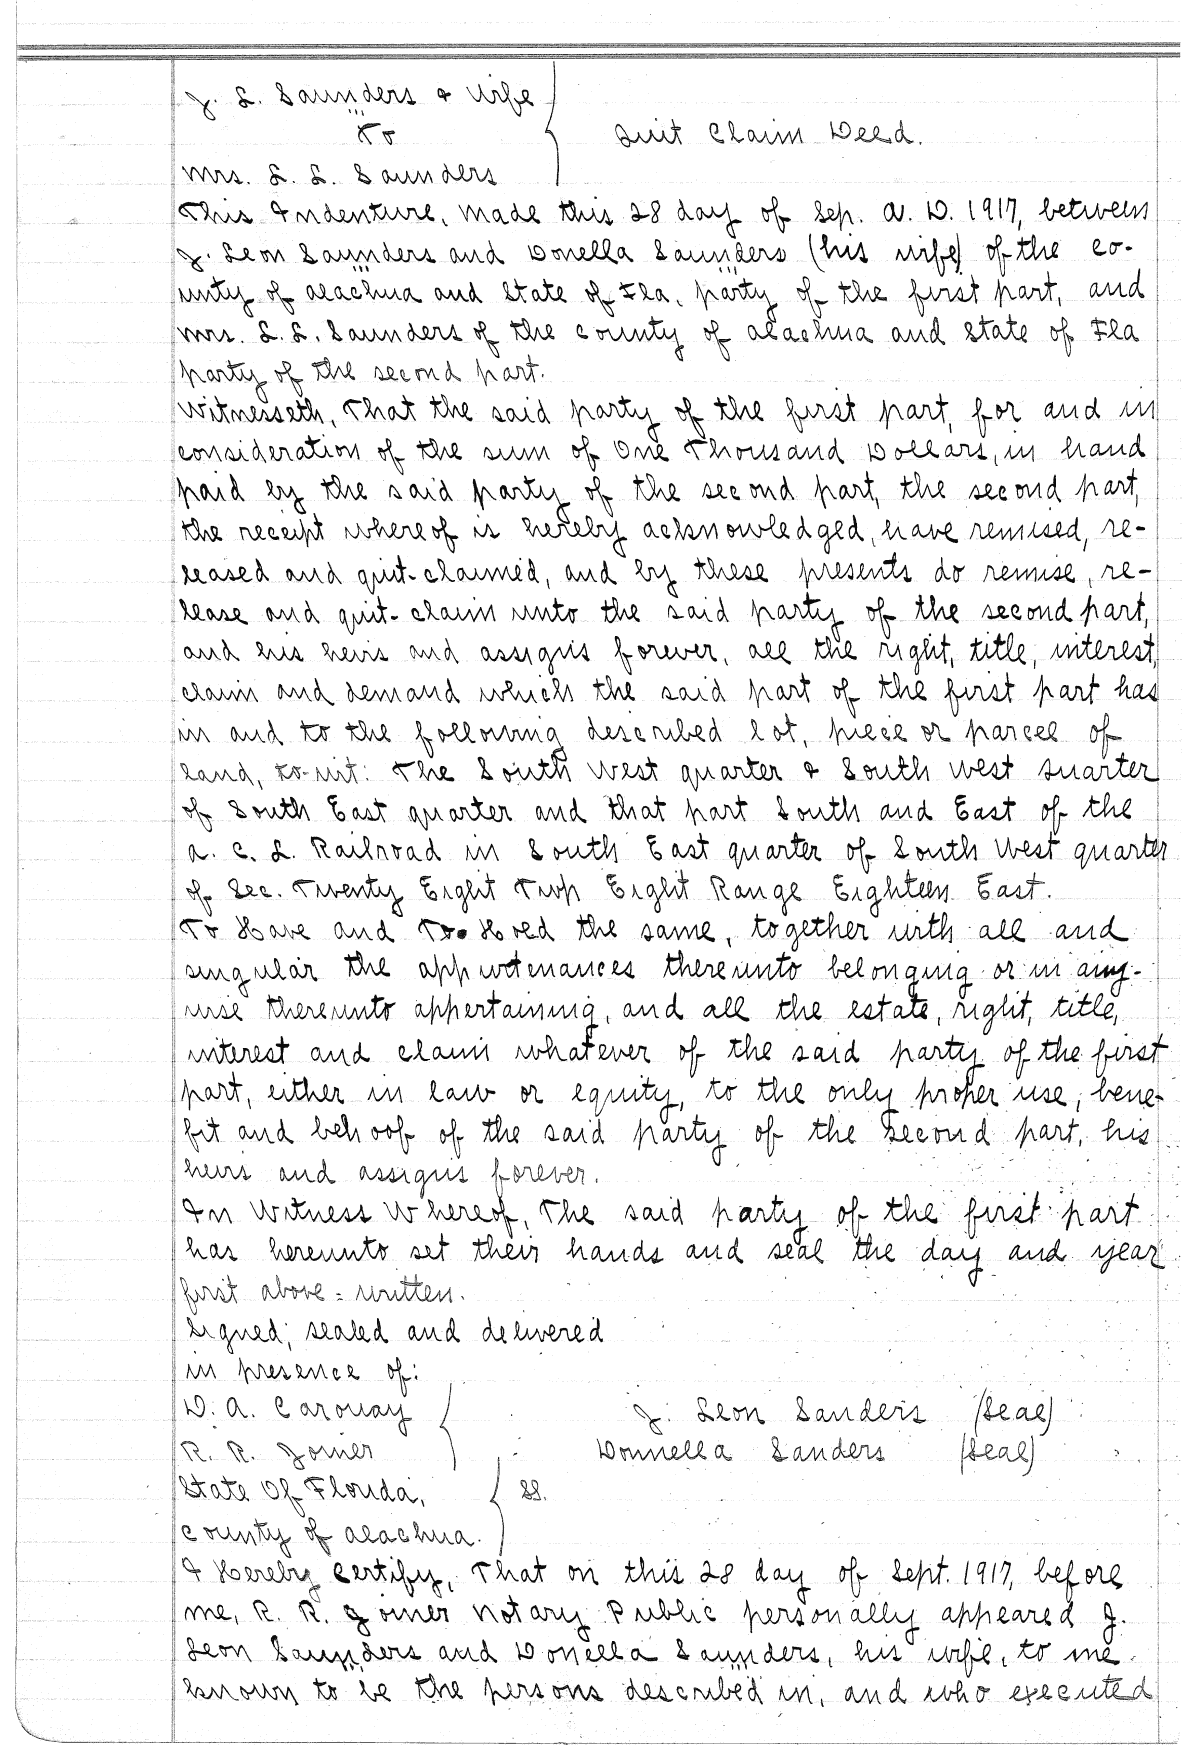 J. L. Saunders & Wife
To
Quit Claim Deed.
Mrs. L. L. Saunders
This Indenture, Made this 28 day of Sep. A. D. 1917, between
J. Leon Saunders and Donella Saunders (his wife) of the co-
unty of Alachua and State of Fla, party of the first part, and
Mrs. L. L. Saunders of the County of Alachua and State of Fla
party of the second part.
Witnesseth, That the said party of the first part, for and in
consideration of the sum of One Thousand Dollars, in hand
paid by the said party of the second part, the second part,
the receipt whereof is hereby acknowledged, have remised, re-
leased and quit-claimed, and by these presents do remise, re-
lease and quit-claim unto the said party of the second part,
and his heirs and assigns forever, all the right, title, interest,
claim and demand which the said part of the first part has
in and to the following described lot, piece or parcel of
land, to-wit: The South West quarter & South West quarter
of South East quarter and that part South and East of the
A. C. L. Railroad in South East quarter of South West quarter
of Sec. Twenty Eight Twp Eight Range Eighteen East.
To Have and To Hold the same, together with all and
singular the appurtenances thereunto belonging or in any-
wise thereunto appertaining, and all the estate, right, title,
interest and claim whatever of the said party of the first
part, either in law or equity, to the only proper use, bene-
fit and behoof of the said party of the second part, his
heirs and assigns forever.
In Witness Whereof, The said party of the first part
has hereunto set their hands and seal the day and year
first above-written.
Signed, sealed and delivered
in presence of:
D. A. Carouay J. Leon Sanders (Seal)
R. R. Joiner Donnella Sanders (Seal)
State Of Florida, SS.
County of Alachua.
I Hereby Certify, That on this 28 day of Sept. 1917, before
me, R. R. Joiner Notary Public personally appeared J.
Leon Saunders and Donella Saunders, his wife, to me
known to be the persons described in, and who executed